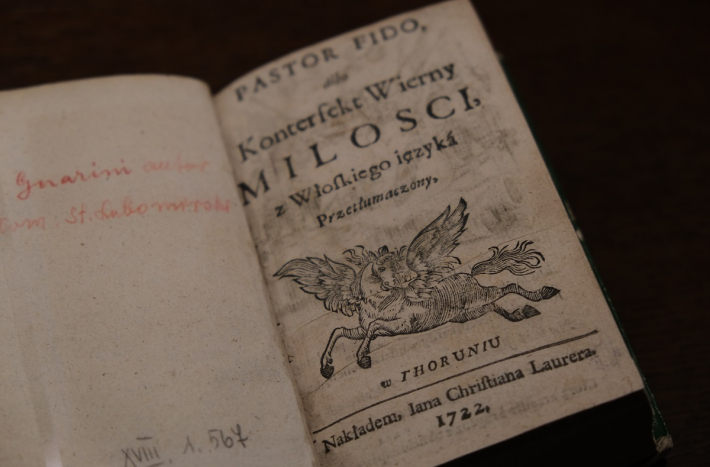 Guarini autor
tłum. St. Lubomirski
XVIII. 1. 567
PASTOR FIDO,
álbo
Konterfekt Wierny
MILOSCI,
z Włoſkiego ięzyká
Przetłumaczony,
w THORUNIU
Nakłádem, Iana Chriſtiana Laurera.
1722.